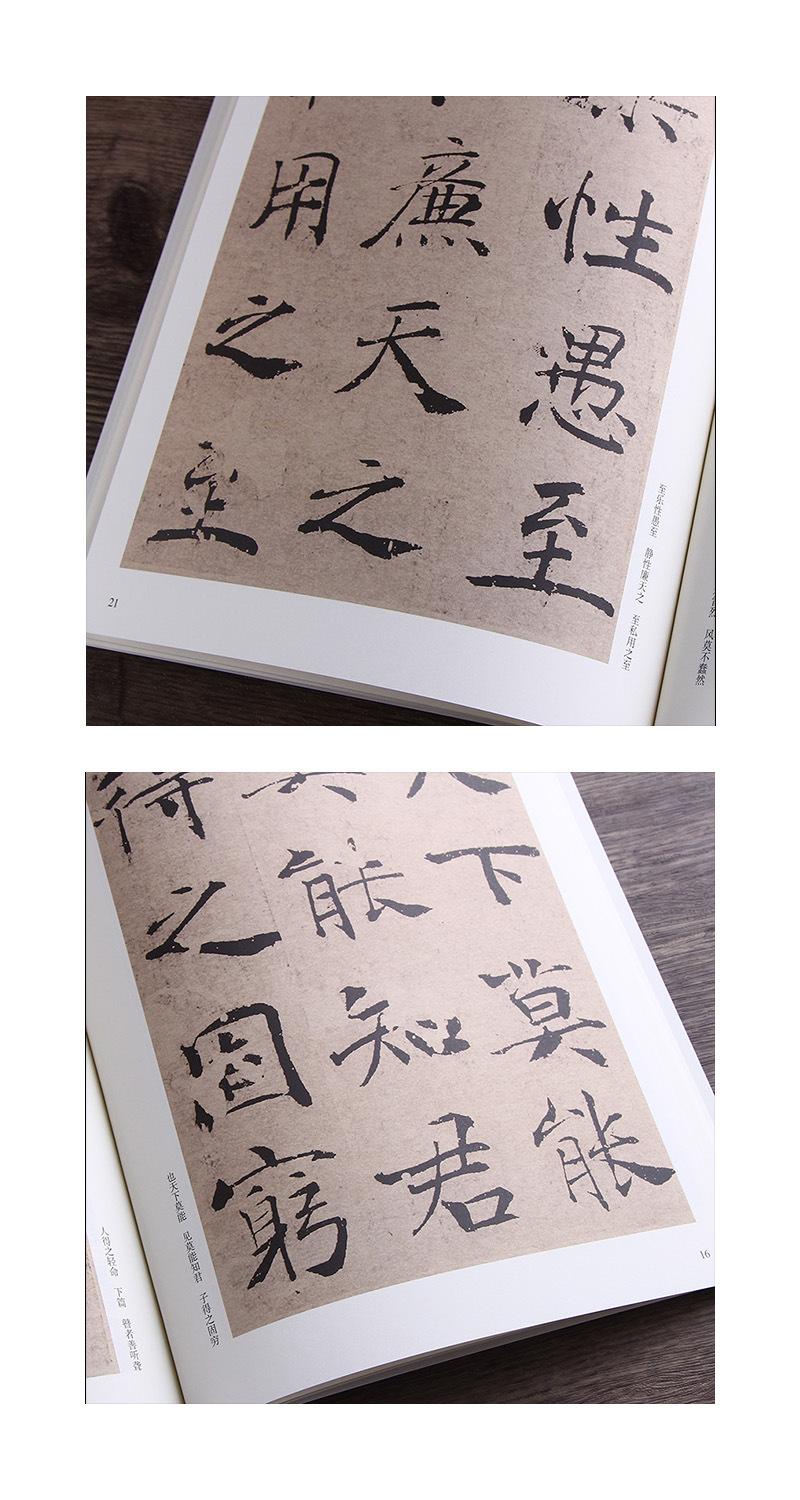 性愚至
廉天之
用之至
至乐性愚至 静性廉天之 至私用之至
风莫不蠢然
21
下莫能
能知君
得之固窮
也天下莫能 见莫能知君 子得之固穷
人得之轻命 下篇 瞽者善听聋
16